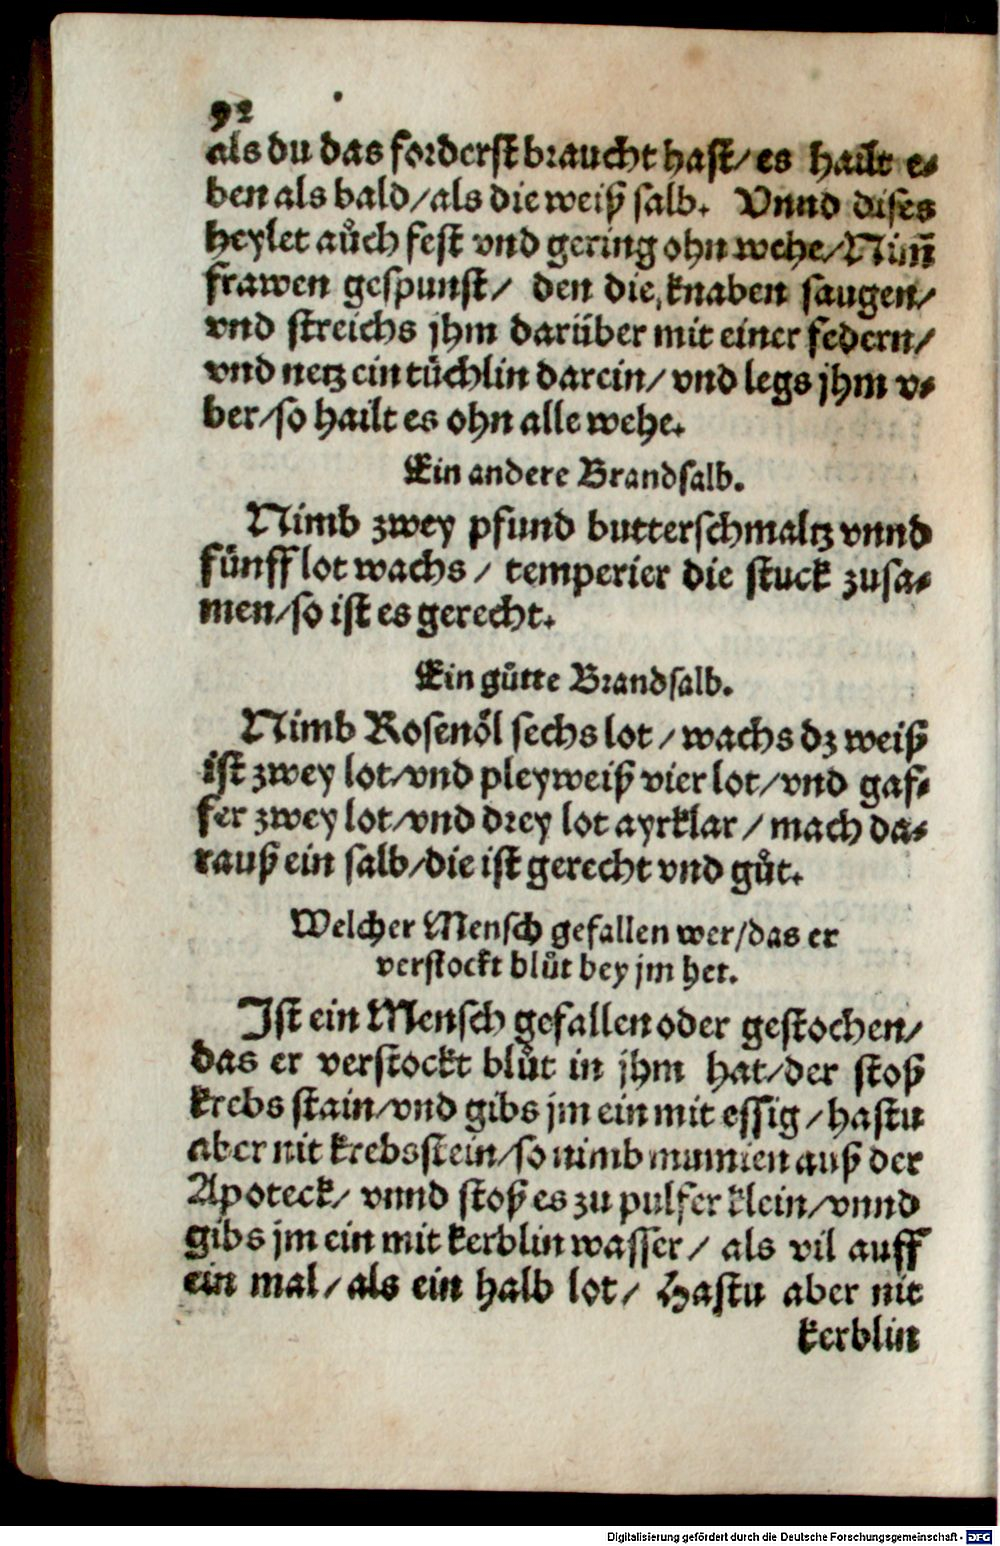 92
als du das forderst braucht hast/ es hailt e⸗
ben als bald/ als die weiß salb. Vnnd dises
heylet auͦch fest vnd gering ohn wehe/ Nim̃
frawen gespunst/ den die knaben saugen/
vnd streichs jhm darüber mit einer federn/
vnd netz ein tüchlin darein/ vnd legs jhm v⸗
ber/ so hailt es ohn alle wehe.
Ein andere Brandsalb.
Nimb zwey pfund butterschmaltz vnnd
fünff lot wachs/ temperier die stuck zusa⸗
men/ so ist es gerecht.
Ein guͦtte Brandsalb.
Nimb Rosenöl sechs lot/ wachs dz weiß
ist zwey lot/ vnd pleyweiß vier lot/ vnd gaf⸗
fer zwey lot/ vnd drey lot ayrklar/ mach da⸗
rauß ein salb/ die ist gerecht vnd guͦt.
Welcher Mensch gefallen wer/ das er
verstockt bluͦt bey jm het.
Ist ein Mensch gefallen oder gestochen/
das er verstockt bluͦt in jhm hat/ der stoß
krebs stain/ vnd gibs jm ein mit essig/ hastu
aber nit krebsstein/ so nimb mumien auß der
Apoteck/ vnnd stoß es zu pulfer klein/ vnnd
gibs jm ein mit kerblin wasser/ als vil auff
ein mal/ als ein halb lot/ Hastu aber nit
kerblin
Digitalisierung gefördert durch die Deutsche Forschungsgemeinschaft - DFG